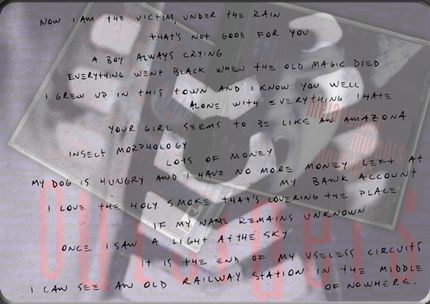 NOW I AM THE VICTIM, UNDER THE RAIN
THAT'S NOT GOOD FOR YOU
A BOY ALWAYS CRYING
EVERYTHING WENT BLACK WHEN THE OLD MAGIC DIED
I GREW UP IN THIS TOWN AND I KNOW YOU WELL
ALONE WITH EVERYTHING I HATE
YOUR GIRL SEEMS TO BE LIKE AN AMAZONA
INSECT MORPHOLOGY
LOTS OF MONEY
MY DOG IS HUNGRY AND I HAVE NO MORE MONEY LEFT AT
MY BANK ACCOUNT
I LOVE THE HOLY SMOKE THAT'S COVERING THE PLACE
IF MY NAME REMAINS UNKNOWN
ONCE I SAW A LIGHT AT THE SKY
IT IS THE END OF MY USELESS CIRCUITS
I CAN SEE AN OLD RAILWAY STATION IN THE MIDDLE
OF NOWHERE.